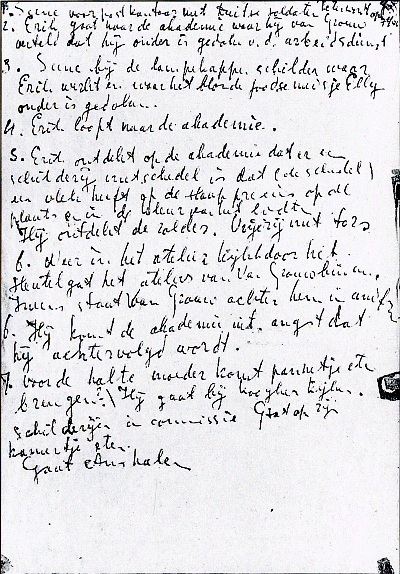 1. Scene voor postkantoor met Duitse soldaten
2. Erik gaat naar de akademie waar hij van Grauw
vertelt dat hij onder is gedoken v.d. arbeidsdienst
3. Scene bij de lampekappen schilder waar
Erik werkt en waar het blonde joodse meisje Elly
onder is gedoken.
4. Erik loopt naar de akademie.
5. Erik ontdekt op de akademie dat er een
schilderij met schedel is dat (de schedel)
een vlek heeft op de precies op de
plaats en in de kleur van het
Hij ontdekt de zolder. met
6. Weer in het atelier kijkt door het
sleutelgat het atelier van Van Grauw binnen.
Ineens staat Van Grauw achter hem in uniform
6. Hij komt de akademie uit. angst dat
hij achtervolgd wordt.
7. voor de halte moeder komt pannetje eten
brengen? Hij gaat bij kijken.
schilderijen in commissie Gaat op zijn
kamertje eten.
Gaat halen